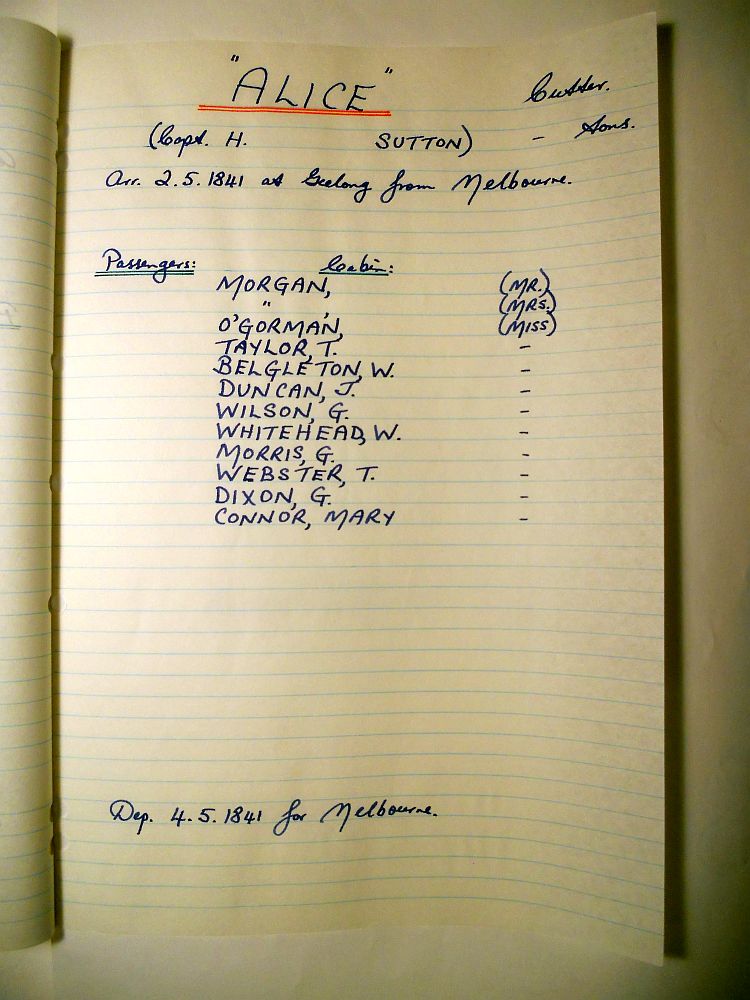 "ALICE" Cutter.
(Capt. H. SUTTON) - tons.
Arr. 2.5.1841 at Geelong from Melbourne.
Passengers: Cabin:
MORGAN, (MR.)
" , (MRS.)
O'GORMAN, (MISS)
TAYLOR, T. -
BELGLETON, W. -
DUNCAN, J. -
WILSON, G. -
WHITEHEAD, W. -
MORRIS, G. -
WEBSTER, T. -
DIXON, G. -
CONNOR, MARY -
Dep. 4.5.1841 for Melbourne.